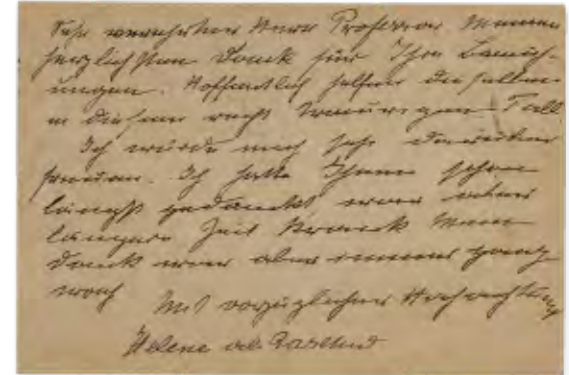 Sehr verehrter Herr Professor Meinen
herzlichsten Dank für Ihre Bemüh-
ungen. Hoffentlich helfen dieselben
in diesem recht traurigen Fall
Ich würde mich sehr darüber
freuen. Ich hatte Ihnen schon
längst gedankt war aber
längere Zeit krank Mein
Dank war aber immer ganz
wach
Mit vorzüglicher Hochachtung
Helene